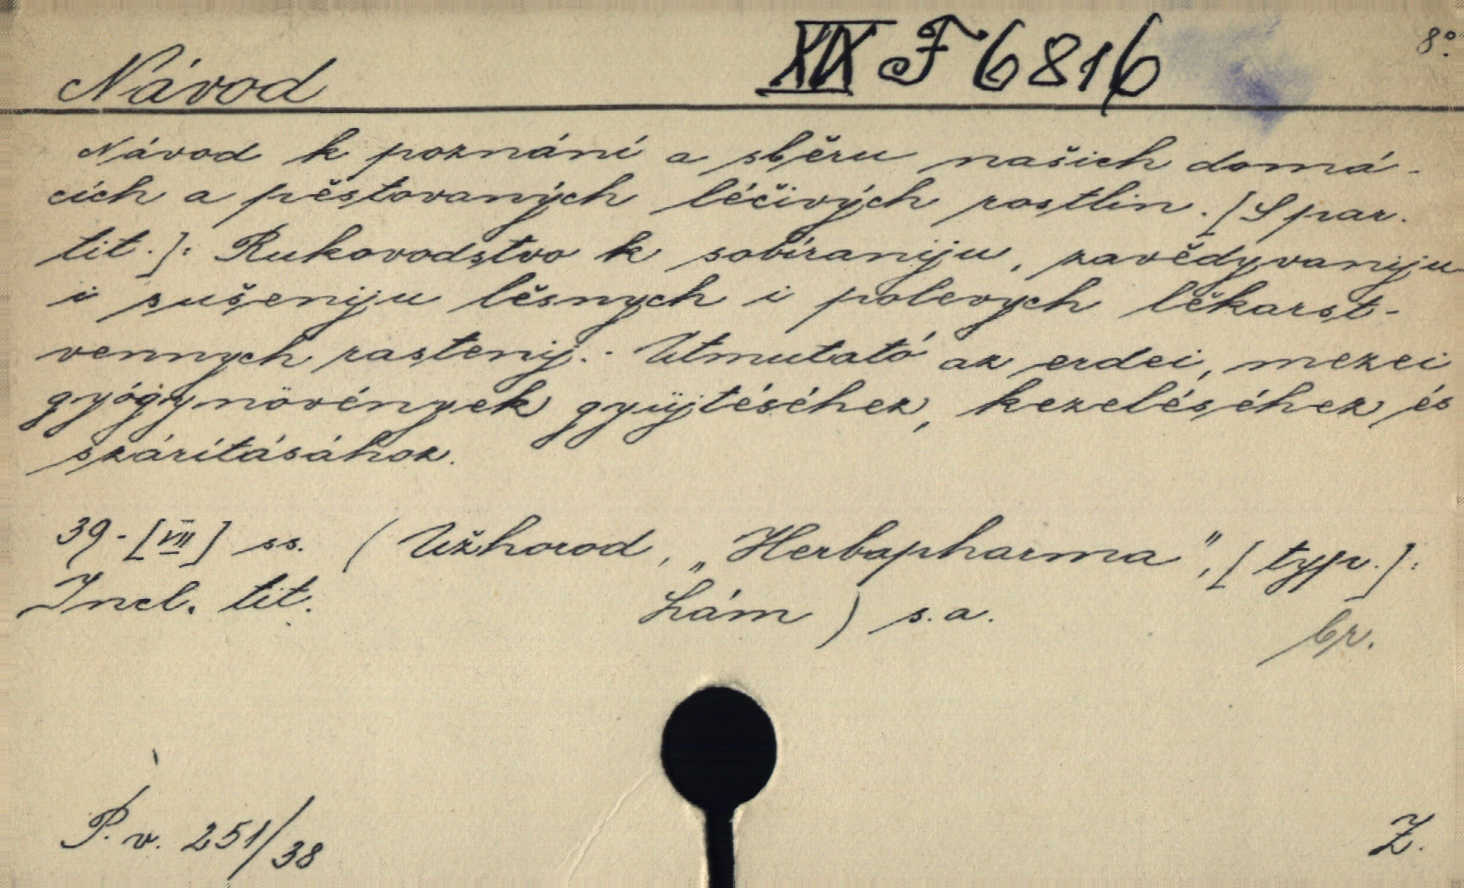 XIX F 6816
8°.
Návod
Návod k poznání a sběru našich domá-
cích a pěstovaných léčivých rostlin. [S par.
tit.]: Rukovodstvo k sobiraniju, zavědyvaniju
i sušeniju lěsnych i polevych lěkarst-
vennych rastenij. - Útmutató az erdei, mezei
gyógynövények gyüjtéséhez, kezeléséhez és
szárításához.
39-[VIII] ss. (Užhorod, „Herbapharma", [typ.]:
Incl. tit. Lám) s.a.
br.
P. v. 251/38
Z.